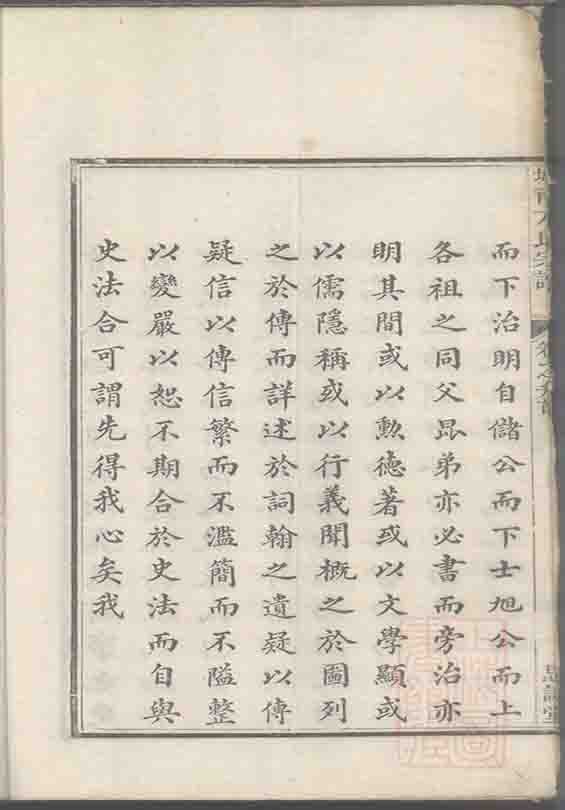 而下治明自儲公而下士旭公而上
各祖之同父昆弟亦必書而旁治亦
明其間或以勲德著或以文學顯或
以儒隱稱或以行義聞概之於圖列
之於傳而詳述於詞翰之遺疑以傳
疑信以傳信繁而不濫簡而不隘整
以變嚴以恕不期合於史法而自與
史法合可謂先得我心矣我